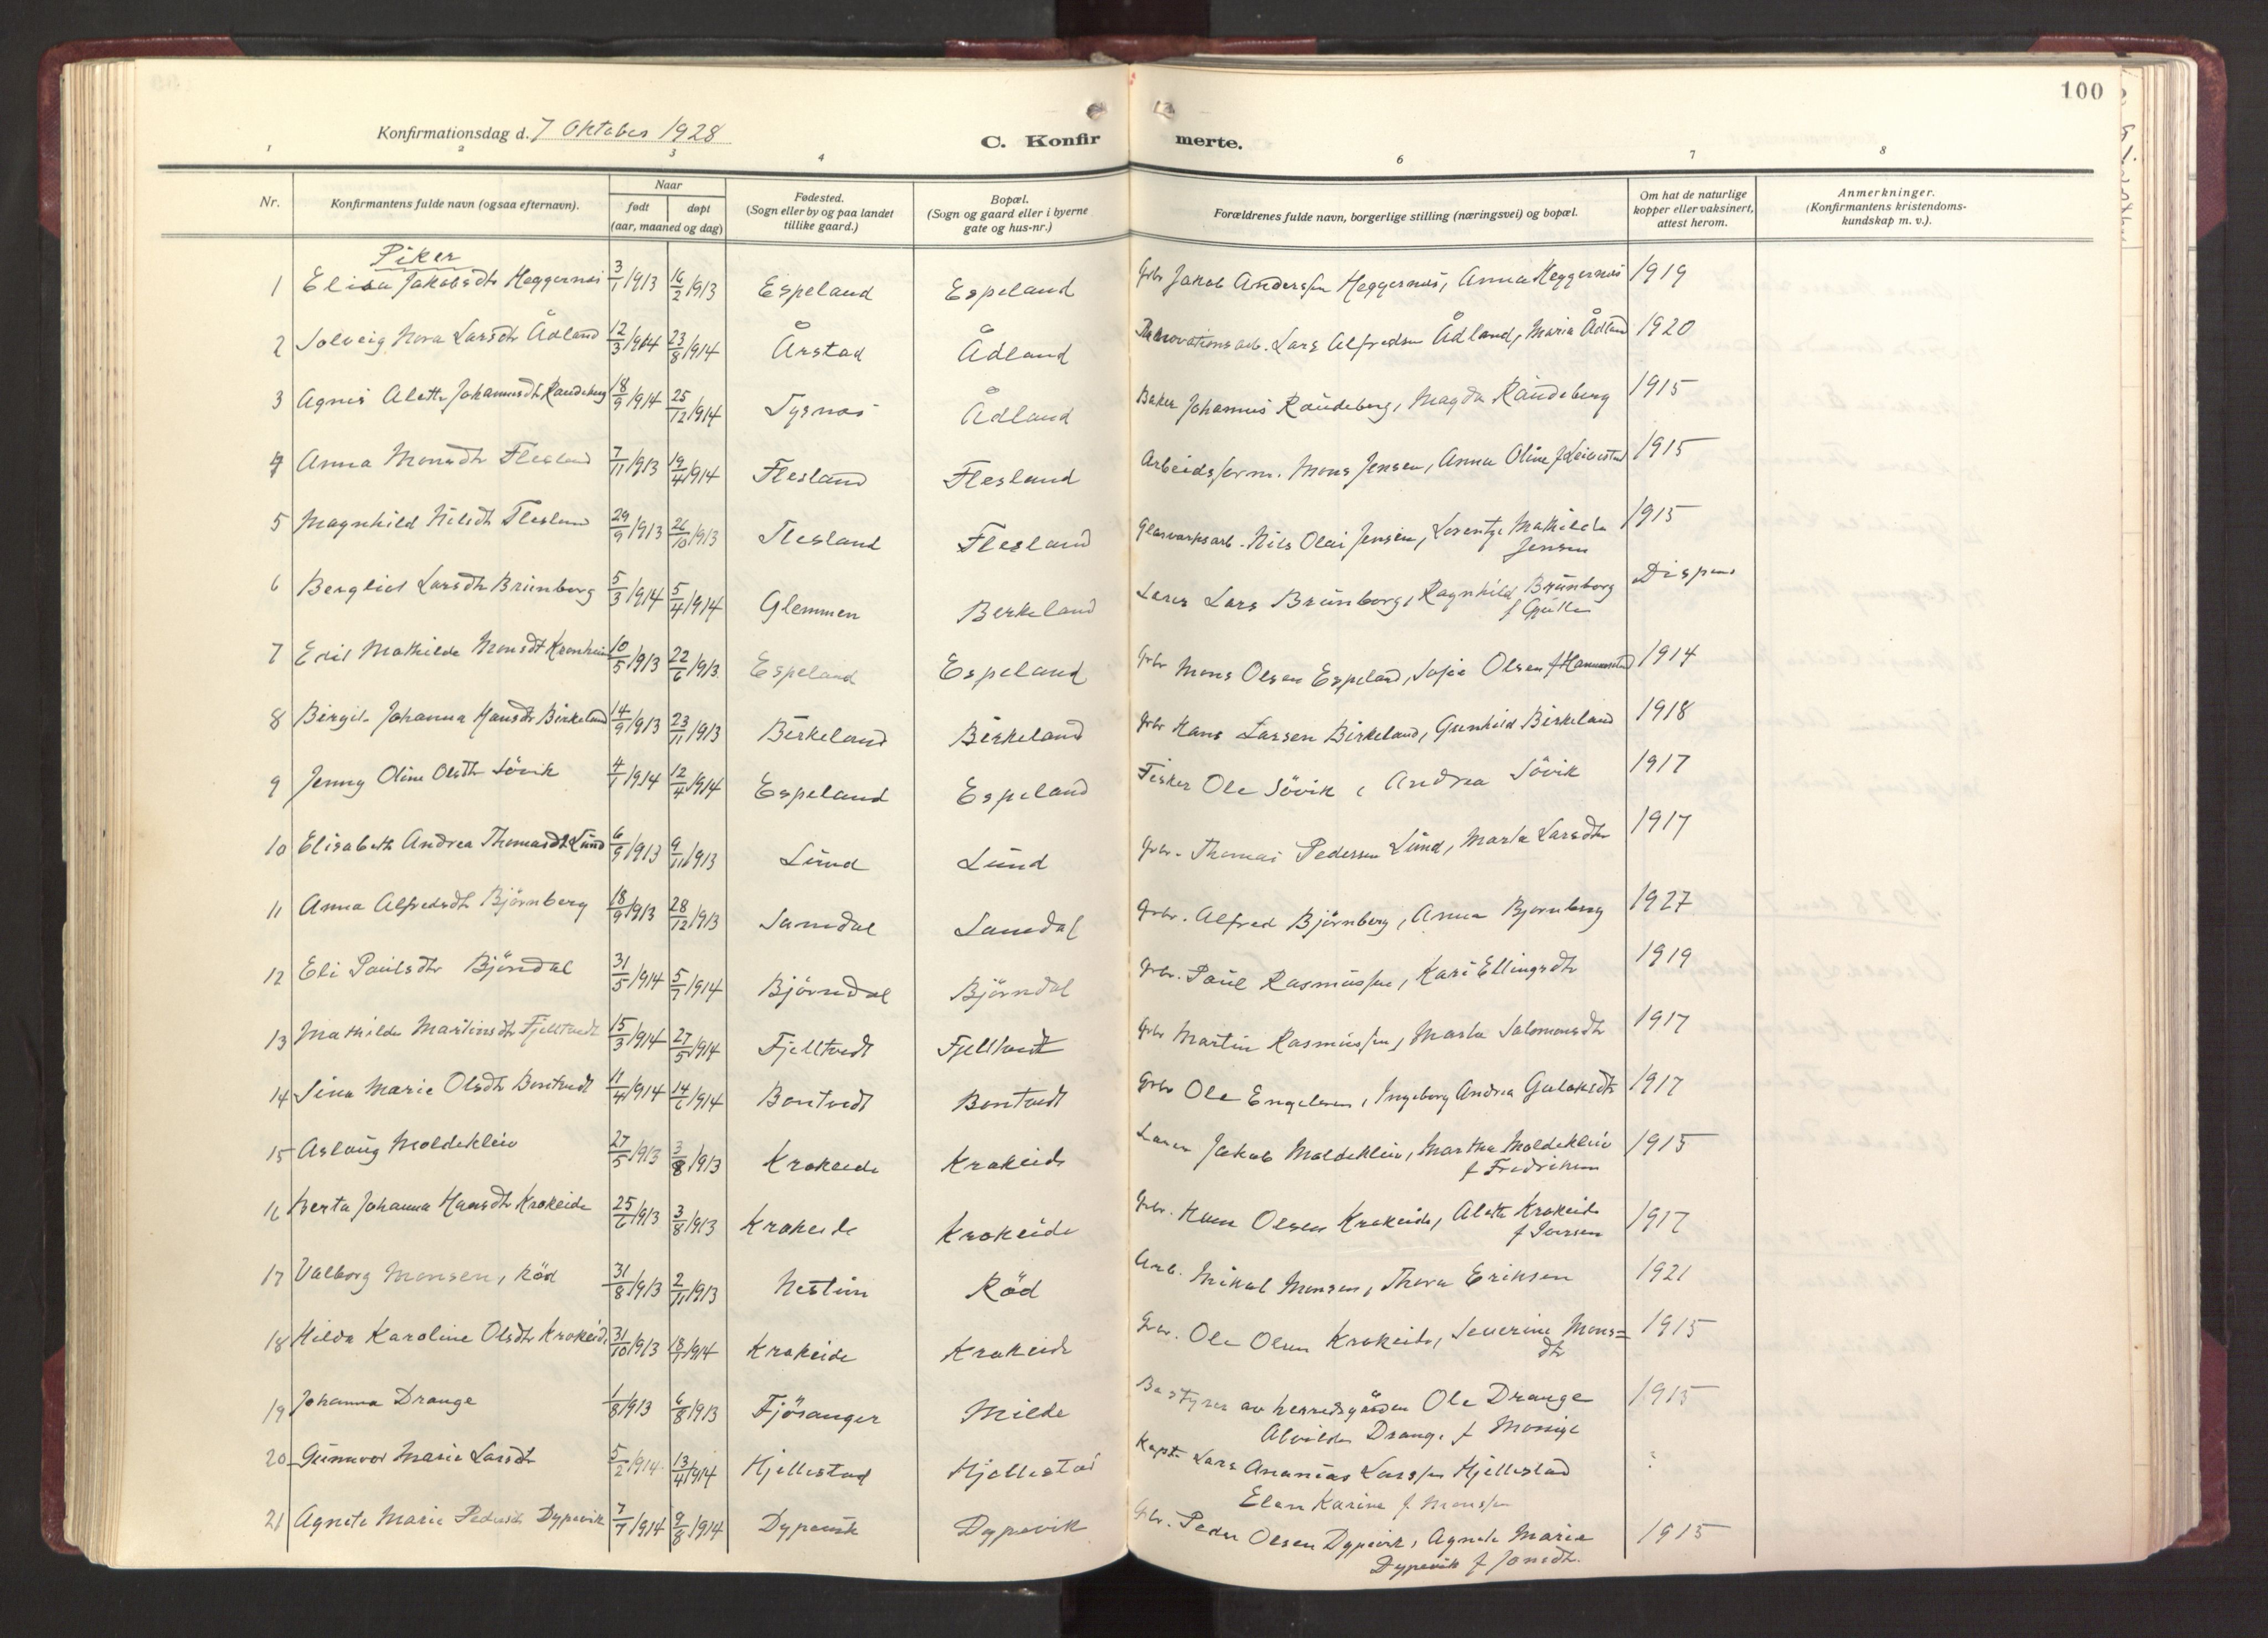 100
Konfirmationsdag d. 7 Oktober 1928
C. Konfirmerte.
1 2 3 4 6 7 8
Nr. | Konfirmantens fulde navn (ogsaa efternavn). | Naar født døpt (aar, maaned og dag) | Fødested. (Sogn eller by og paa landet tillike gaard.) | Bopæl. (Sogn og gaard eller i byerne gate og hus-nr.) | Forældrenes fulde navn, borgerlige stilling (næringsvei) og bopæl. | Om hat de naturlige kopper eller vaksinert, attest herom. | Anmerkninger. (Konfirmantens kristendomskundskap m. v.).
Piker
1 Elisa Jakobsdtr Heggernes 3/1 1913 16/2 1913 Espeland Espeland Gbr Jakob Anderssen Heggernes, Anna Heggernes 1919
2 Solveig Nora Larsdtr Ådland 12/3 1914 23/8 1914 Årstad Ådland Renovationsarb. Lars Alfredsen Ådland, Maria Ådland 1920
3 Agnes Alette Johannesdtr Raudeberg 18/9 1914 25/12 1914 Tysnes Ådland Baker Johannes Raudeberg, Magda Raudeberg 1915
4 Anna Monsdtr Flesland 7/11 1913 19/4 1914 Flesland Flesland Arbeidsform. Mons Jensen, Anna Oline f. Leirestad 1915
5 Magnhild Nilsdtr Flesland 29/9 1913 26/10 1913 Flesland Flesland Glasverksarb. Nils Olai Jensen, Lorentze Mathilda Jensen 1915
6 Bergliot Larsdtr Brünborg 5/3 1914 5/4 1914 Glemmen Berkeland Lærer Lars Brünborg, Ragnhild Brünborg f. Dispens
7 Edil Mathilde Monsdtr Kronheim 10/5 1913 22/6 1913 Espeland Espeland Gbr Mons Olsen Espeland, Sofie Olsen f. 1914
8 Birgit Johanna Hansdtr Birkeland 14/9 1913 23/11 1913 Birkeland Birkeland Gbr Hans Larsen Birkeland, Gunhild Birkeland 1918
9 Jenny Oline Olsdtr Sövik 4/1 1914 12/4 1914 Espeland Espeland Fisker Ole Sövik, Andrea Sövik 1917
10 Elisabeth Andrea Thomasdtr Lund 6/9 1913 9/11 1913 Lund Lund Gbr. Thomas Pedersen Lund, Marta Larsdtr 1917
11 Anna Alfredsdtr Björnberg 18/9 1913 28/12 1913 Samdal Samdal Gbr. Alfred Björnberg, Anna Bjornberg 1927
12 Eli Paulsdtr Björndal 31/5 1914 5/7 1914 Björndal Björndal Gbr. Paul Rasmussen, Kari Ellingsdtr 1919
13 Mathilde Martinsdtr Fjelltvedt 15/3 1914 27/5 1914 Fjelltvedt Fjelltvedt Gbr Martin Rasmussen, Marta Salomonsdtr 1917
14 Sina Marie Olsdtr Bontvedt 11/4 1914 14/6 1914 Bontvedt Bontvedt Gbr Ole Engelsen, Ingeborg Andrea Gulaksdtr 1917
15 Aslaug Moldekleiv 27/5 1913 3/8 1913 Krokeide Krokeide Lærer Jakob Moldekleiv, Martha Moldekleiv f. Fredriksen 1915
16 Berta Johanna Hansdtr Krokeide 25/6 1913 3/8 1913 Krokeide Krokeide Gbr. Hans Olsen Krokeide, Alette Krokeide f Iversen 1917
17 Valborg Monsen, Röd 31/8 1913 2/11 1913 Nestun Röd Arb. Mikal Monsen, Thora Eriksen 1921
18 Hilda Karoline Olsdtr Krokeide 31/10 1913 18/1 1914 Krokeide Krokeide Gbr. Ole Olsen Krokeide, Severine Monsdtr 1915
19 Johanna Drange 1/8 1913 6/8 1913 Fjösanger Milde Bestyrer av herredsgården Ole Drange Alvilde Drange f Monige 1915
20 Gunnvor Marie Larsdtr 5/2 1914 13/4 1914 Hjellestad Hjellestad Kapt. Lars Ananias Larssen Hjellestad Elen Karine f. Monssen :
21 Agnete Marie Pedersdtr Dypevik 7/7 1914 9/8 1914 Dypevik Dypevik Gbr. Peder Olsen Dypevik, Agnete Marie Dypevik f Jonsdtr. 1915